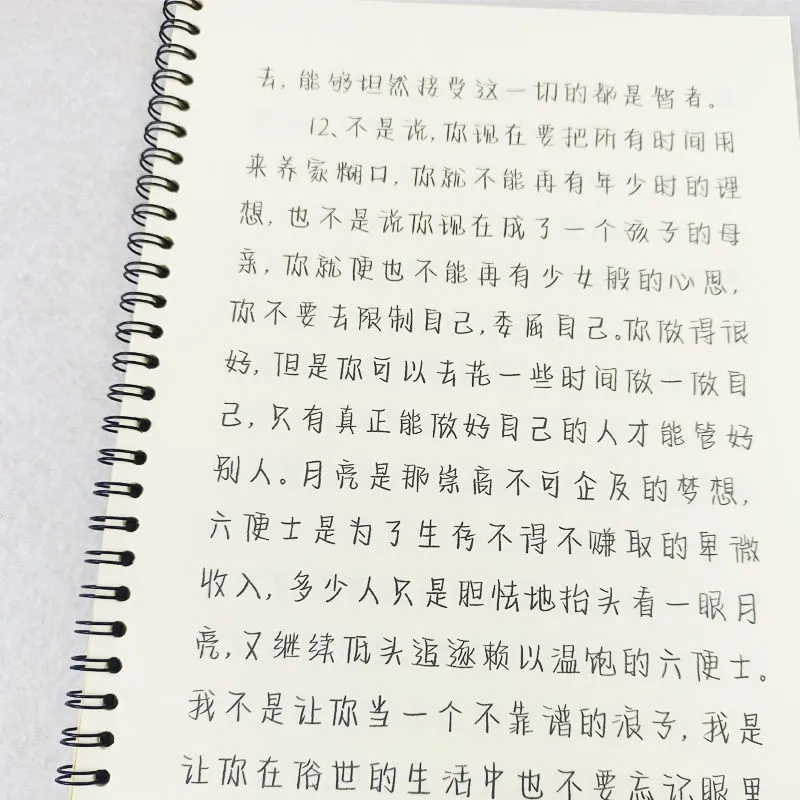 去,能够坦然接受这一切的都是智者。
12、不是说,你现在要把所有时间用
来养家糊口,你就不能再有年少时的理
想,也不是说你现在成了一个孩子的母
亲,你就便也不能再有少女般的心思,
你不要去限制自己,委屈自己。你做得很
好,但是你可以去花一些时间做一做自
己,只有真正能做好自己的人才能管好
别人。月亮是那崇高不可企及的梦想,
六便士是为了生存不得不赚取的卑微
收入,多少人只是胆怯地抬头看一眼月
亮,又继续低头追逐赖以温饱的六便士。
我不是让你当一个不靠谱的浪子,我是
让你在俗世的生活中也不要忘记眼里